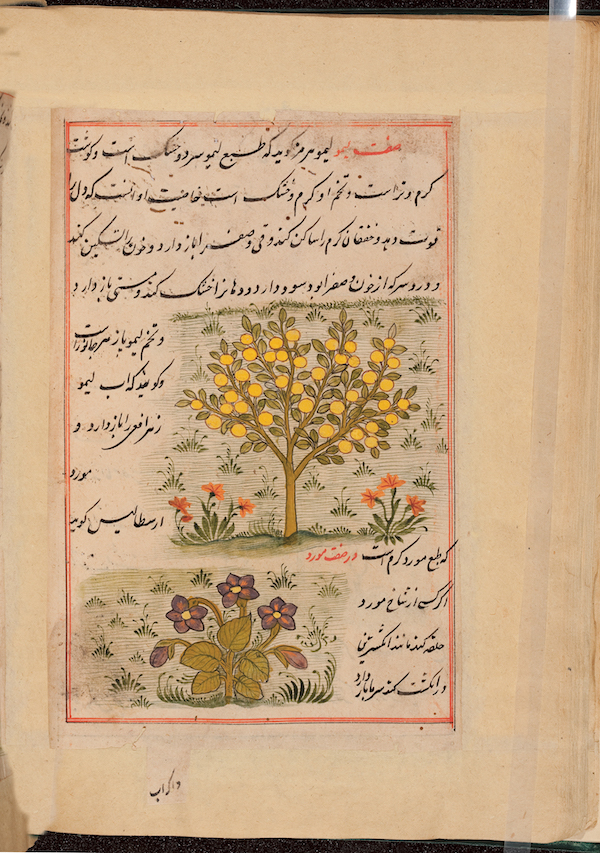 صفت لیمو لیمو هرمز کوید که طبع لیمو سرد و خشک است و کوشت
کرم و تر است و تخم او کرم و خشک است خاصیت او آنست که دل را
قوت دهد و خفقان کرم را ساکن کند و قی و صفرا باز دارد و خون را تسکین کند
و درد سر که از خون و صفرا بود سود دارد و خشک کند و مستی باز دارد
و تخم لیمو باز هر
و کویند که اب لیمو
زهر افعی را باز دارد و
مورد
ارسطالیس کوید
که طبع مورد کرم است در صفت مورد
اکر کسی از شاخ مورد
حلقه کند مانند انکشترین
و در انکشت کند باز دارد
و اکر اب